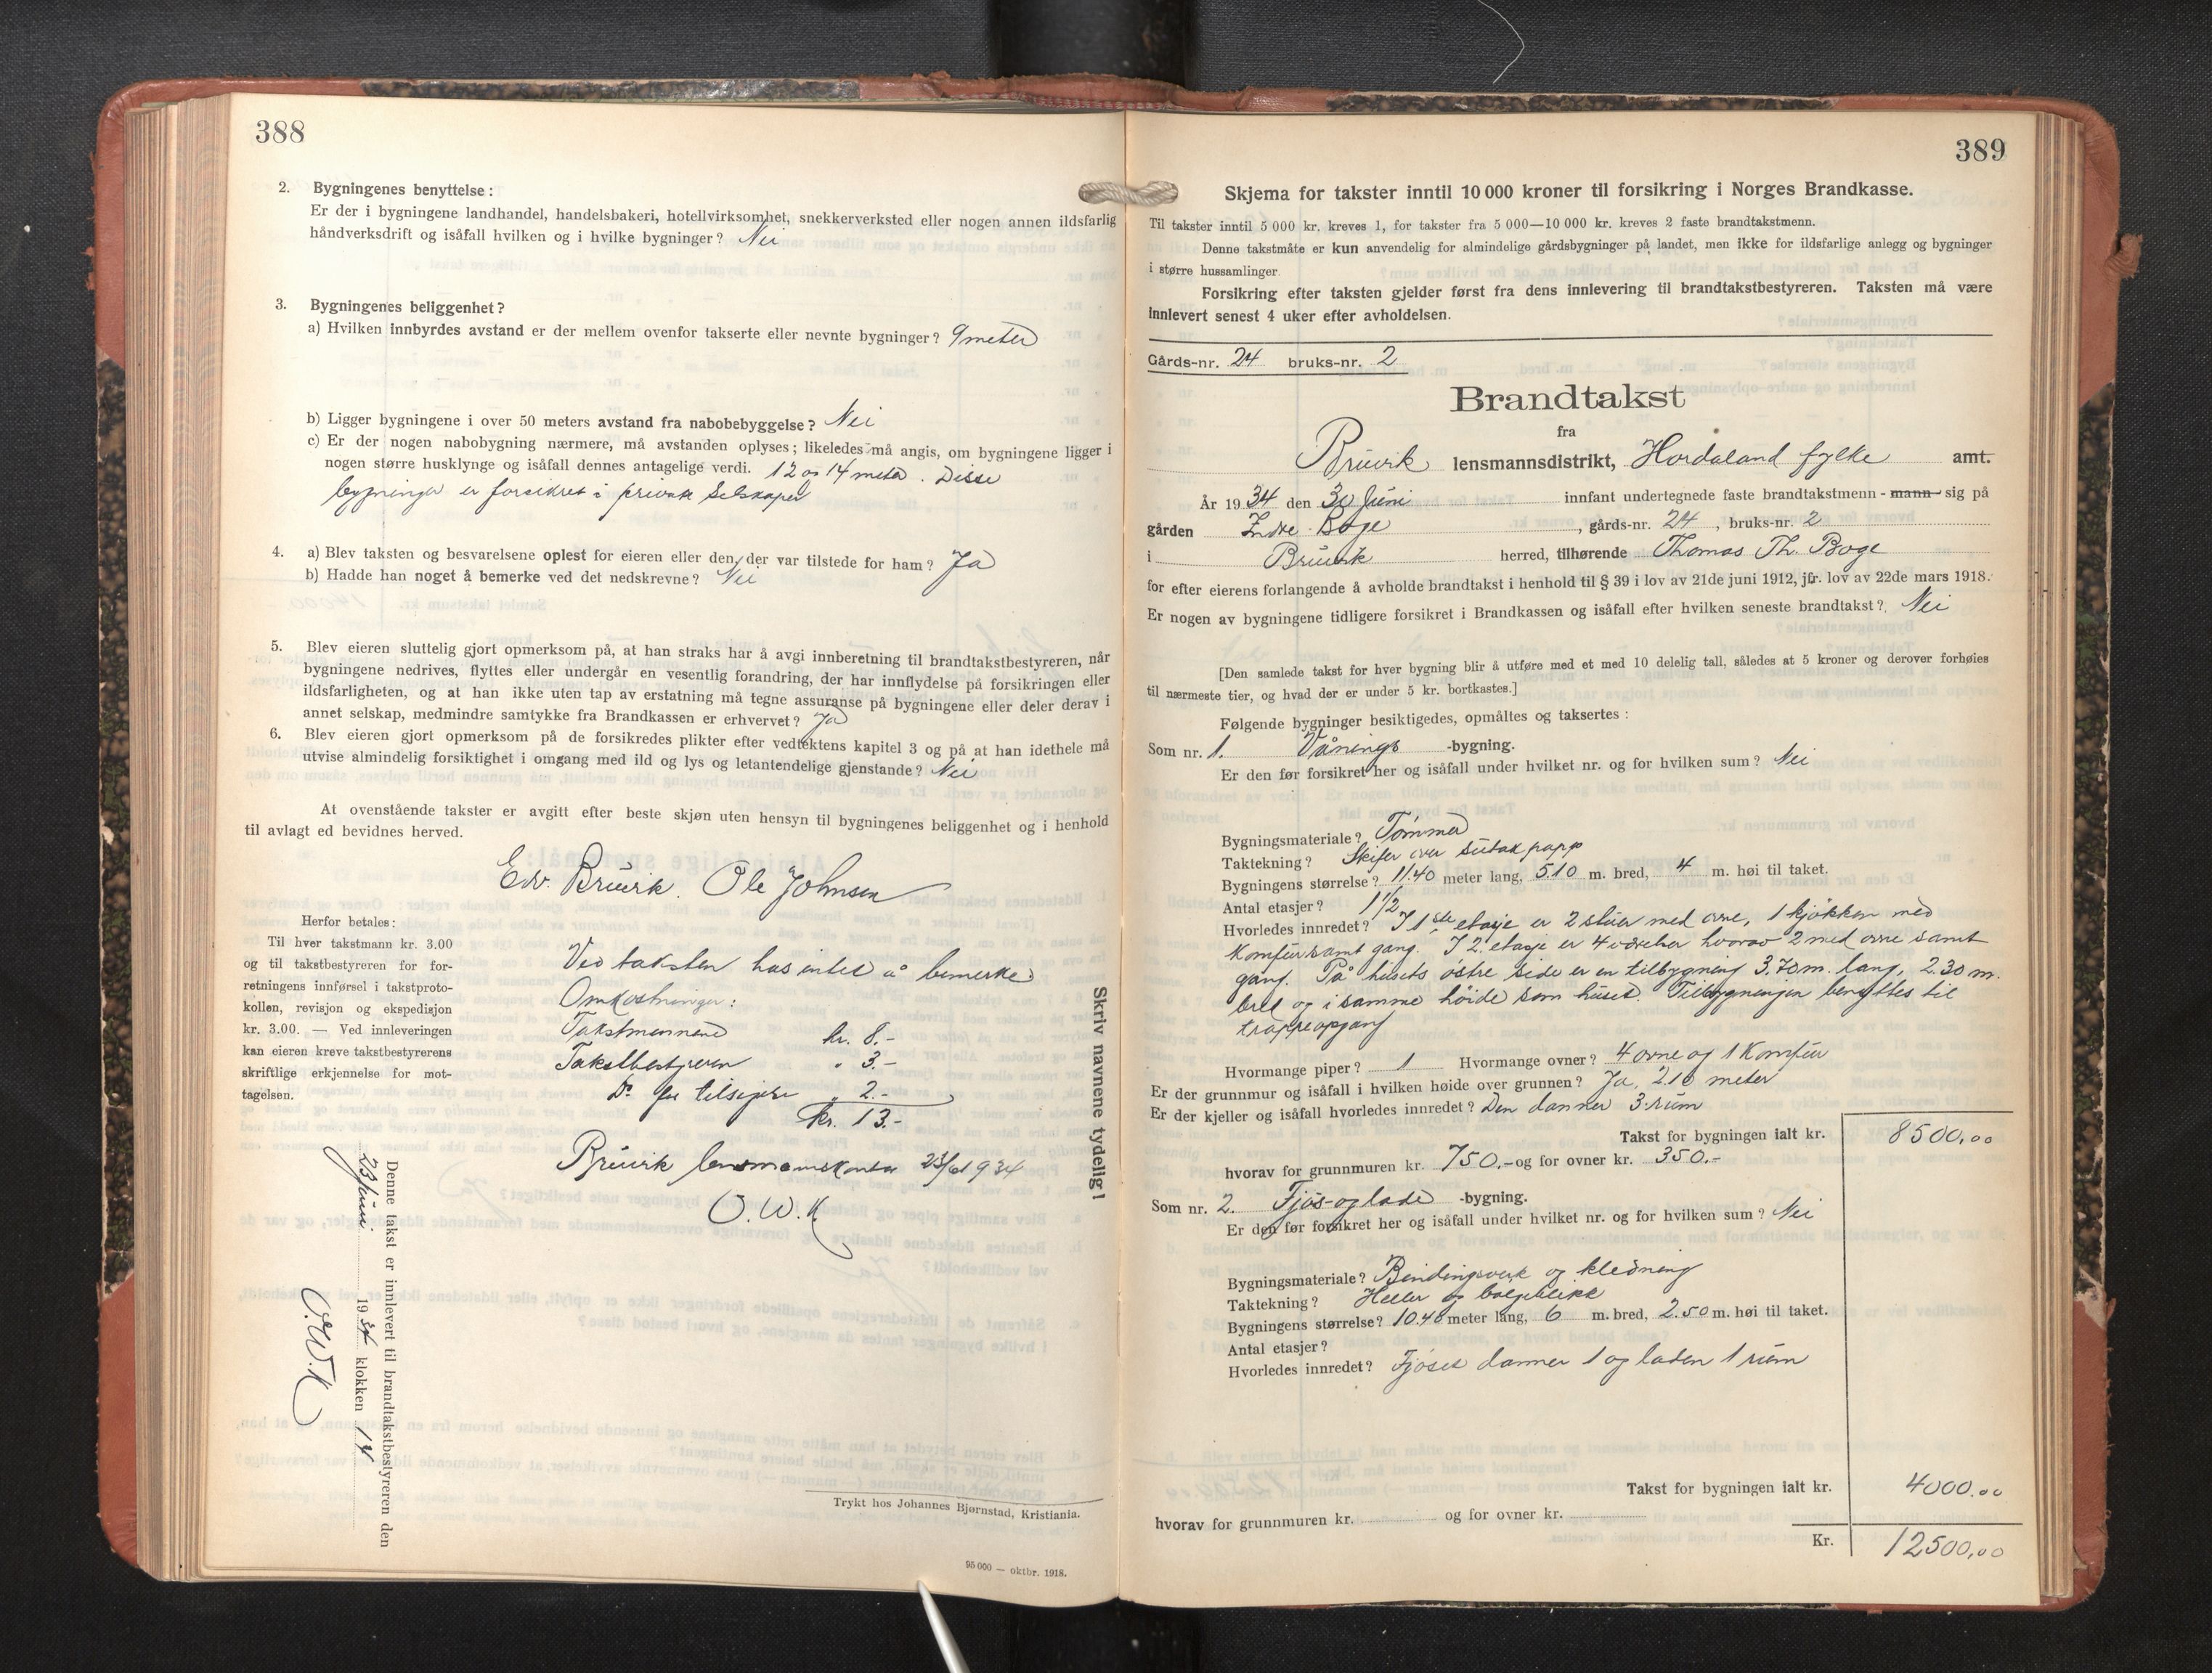 388
2. Bygningenes benyttelse:
Er der i bygningene landhandel, handelsbakeri, hotellvirksomhet, snekkerverksted eller nogen annen ildsfarlig
håndverksdrift og isåfall hvilken og i hvilke bygninger? Nei
3. Bygningenes beliggenhet?
a) Hvilken innbyrdes avstand er der mellem ovenfor takserte eller nevnte bygninger? 9 meter
b) Ligger bygningene i over 50 meters avstand fra nabobebyggelse? Nei
c) Er der nogen nabobygning nærmere, må avstanden oplyses; likeledes må angis, om bygningene ligger i
nogen større husklynge og isåfall dennes antagelige verdi. 12 og 14 meter. Disse
bygninger er forsikret i private Selskaper
4. a) Blev taksten og besvarelsene oplest for eieren eller den, der var tilstede for ham? Ja
b) Hadde han noget å bemerke ved det nedskrevne? Nei
5. Blev eieren sluttelig gjort opmerksom på, at han straks har å avgi innberetning til brandtakstbestyreren, når
bygningene nedrives, flyttes eller undergår en vesentlig forandring, der har innflydelse på forsikringen eller
ildsfarligheten, og at han ikke uten tap av erstatning må tegne assuranse på bygningene eller deler derav i
annet selskap, medmindre samtykke fra Brandkassen er erhvervet? Ja
6. Blev eieren gjort opmerksom på de forsikredes plikter efter vedtektens kapitel 3 og på at han idethele må
utvise almindelig forsiktighet i omgang med ild og lys og letantendelige gjenstande? Nei
At ovenstående takster er avgitt efter beste skjøn uten hensyn til bygningenes beliggenhet og i henhold
til avlagt ed bevidnes herved.
Edv. Bruvik. Ole Johnsen
Herfor betales:
Til hver takstmann kr. 3.00
og til takstbestyreren for for-
retningens innførsel i takstproto-
kollen, revisjon og ekspedisjon
kr. 3.00. — Ved innleveringen
kan eieren kreve takstbestyrerens
skriftlige erkjennelse for mot-
tagelsen.
Ved taksten has intet å bemerke
Omkostninger:
Takstmennene kr. 8.-
Takstbestyreren " 3.-
Do for tilsigelse " 2.-
Kr. 13.-
Bruvik lensmannskontor 23/6 1934
O.W.K
Skriv navnene tydelig!
Denne takst er innlevert til brandtakstbestyreren den
23 juni 1934 klokken 14
O.W.K
Trykt hos Johannes Bjørnstad, Kristiania.
95 000 — oktbr. 1918.
389
Skjema for takster inntil 10 000 kroner til forsikring i Norges Brandkasse.
Til takster inntil 5 000 kr. kreves 1, for takster fra 5 000—10 000 kr. kreves 2 faste brandtakstmenn.
Denne takstmåte er kun anvendelig for almindelige gårdsbygninger på landet, men ikke for ildsfarlige anlegg og bygninger
i større hussamlinger.
Forsikring efter taksten gjelder først fra dens innlevering til brandtakstbestyreren. Taksten må være
innlevert senest 4 uker efter avholdelsen.
Gårds-nr. 24 bruks-nr. 2
Brandtakst
fra
Bruvik lensmannsdistrikt, Hordaland fylke amt.
År 1934 den 30 Juni innfant undertegnede faste brandtakstmenn - mann - sig på
gården Indre Boge, gårds-nr. 24, bruks-nr. 2
i Bruvik herred, tilhørende Thomas Th. Boge
for efter eierens forlangende å avholde brandtakst i henhold til § 39 i lov av 21de juni 1912, jfr. lov av 22de mars 1918.
Er nogen av bygningene tidligere forsikret i Brandkassen og isåfall efter hvilken seneste brandtakst? Nei
[Den samlede takst for hver bygning blir å utføre med et med 10 delelig tall, således at 5 kroner og derover forhøies
til nærmeste tier, og hvad der er under 5 kr. bortkastes.]
Følgende bygninger besiktigedes, opmåltes og taksertes:
Som nr. 1. Vånings -bygning.
Er den før forsikret her og isåfall under hvilket nr. og for hvilken sum? Nei
Bygningsmateriale? Tømmer
Taktekning? Skifer over sutak papp
Bygningens størrelse? 11.40 meter lang, 5.10 m. bred, 4 m. høi til taket.
Antal etasjer? 1 1/2
Hvorledes innredet? I 1ste etasje er 2 stuer med ovne, 1 kjøkken med
komfur samt gang. I 2. etasje er 4 værelser hvorav 2 med ovne samt
gang. På husets østre side er en tilbygning 3.70 m. lang, 2.30 m.
bred og i samme høide som huset. Tilbygningen benyttes til
trappeopgang
Hvormange piper? 1 Hvormange ovner? 4 ovne og 1 Komfur
Er der grunnmur og isåfall i hvilken høide over grunnen? Ja, 2.10 meter
Er der kjeller og isåfall hvorledes innredet? Den danner 3 rum
Takst for bygningen ialt kr. 8500,00
hvorav for grunnmuren kr. 750.- og for ovner kr. 350.-
Som nr. 2. Fjøs- og lade -bygning.
Er den før forsikret her og isåfall under hvilket nr. og for hvilken sum? Nei
Bygningsmateriale? Bindingsverk og kledning
Taktekning? Heller og bølgeblikk
Bygningens størrelse? 10.40 meter lang, 6 m. bred, 2.50 m. høi til taket.
Antal etasjer?
Hvorledes innredet? Fjøset danner 1 og laden 1 rum
Takst for bygningen ialt kr. 4000.00
hvorav for grunnmuren kr. og for ovner kr.
Kr. 12500,00